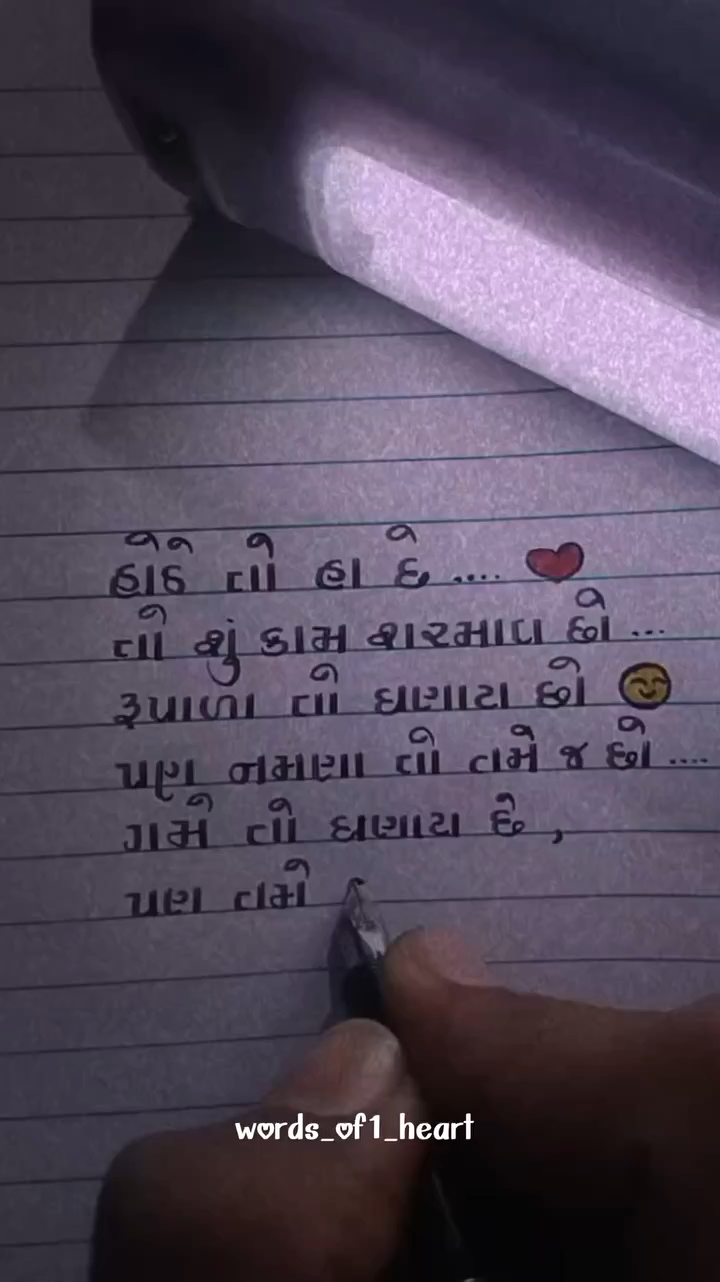 હોઠે તો હા છે .... ❤️
તો શું કામ શરમાવ છો ...
રૂપાળા તો ઘણાય છો 😊
પણ નમણા તો તમે જ છો ....
ગમે તો ઘણાય છે ,
પણ તમો
words_of1_heart